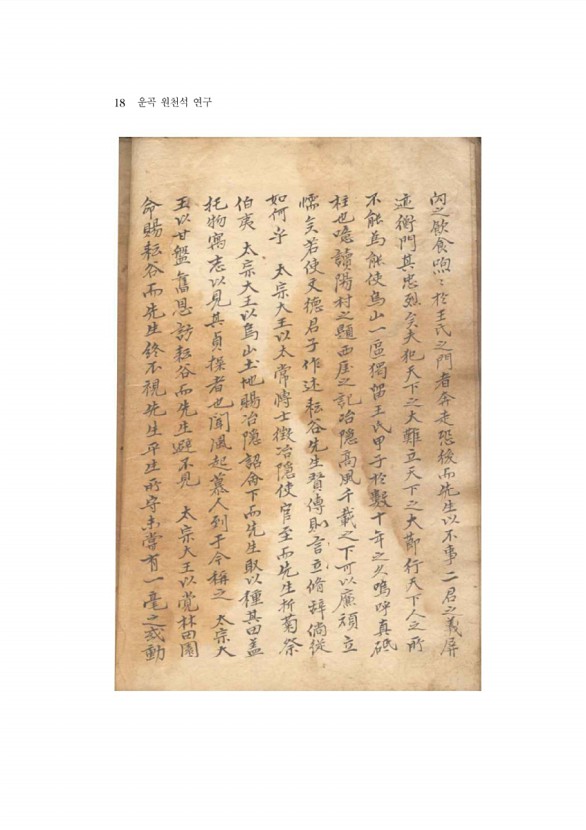 18 운곡 원천석 연구
閃之飮食喣〻於王氏之門者奔走恐後而先生以不事二君之義屛
迹衡門其忠烈矣夫犯天下之大難立天下之大節行天下人之所
不能爲能使烏山一區獨留王氏甲子於數十年之久嗚呼真砥
柱也噫讀陽村之題西厓之記冶隱高風千載之下可以廉頑立
懦矣若使文德君子作述耘谷先生賢傳則言立脩辭倘從
如何乎 太宗大王以太常博士徵冶隱使官至而先生折菊祭
伯夷 太宗大王以烏山土地賜冶隱詔命下而先生取以種其田盖
托物寓志以見其貞操者也聞風起慕人到于今稱之 太宗大
王以甘盤舊恩訪耘谷而先生避不見 太宗大王以覺林田園
命賜耘谷而先生終不視先生平生所守未嘗有一毫之或動